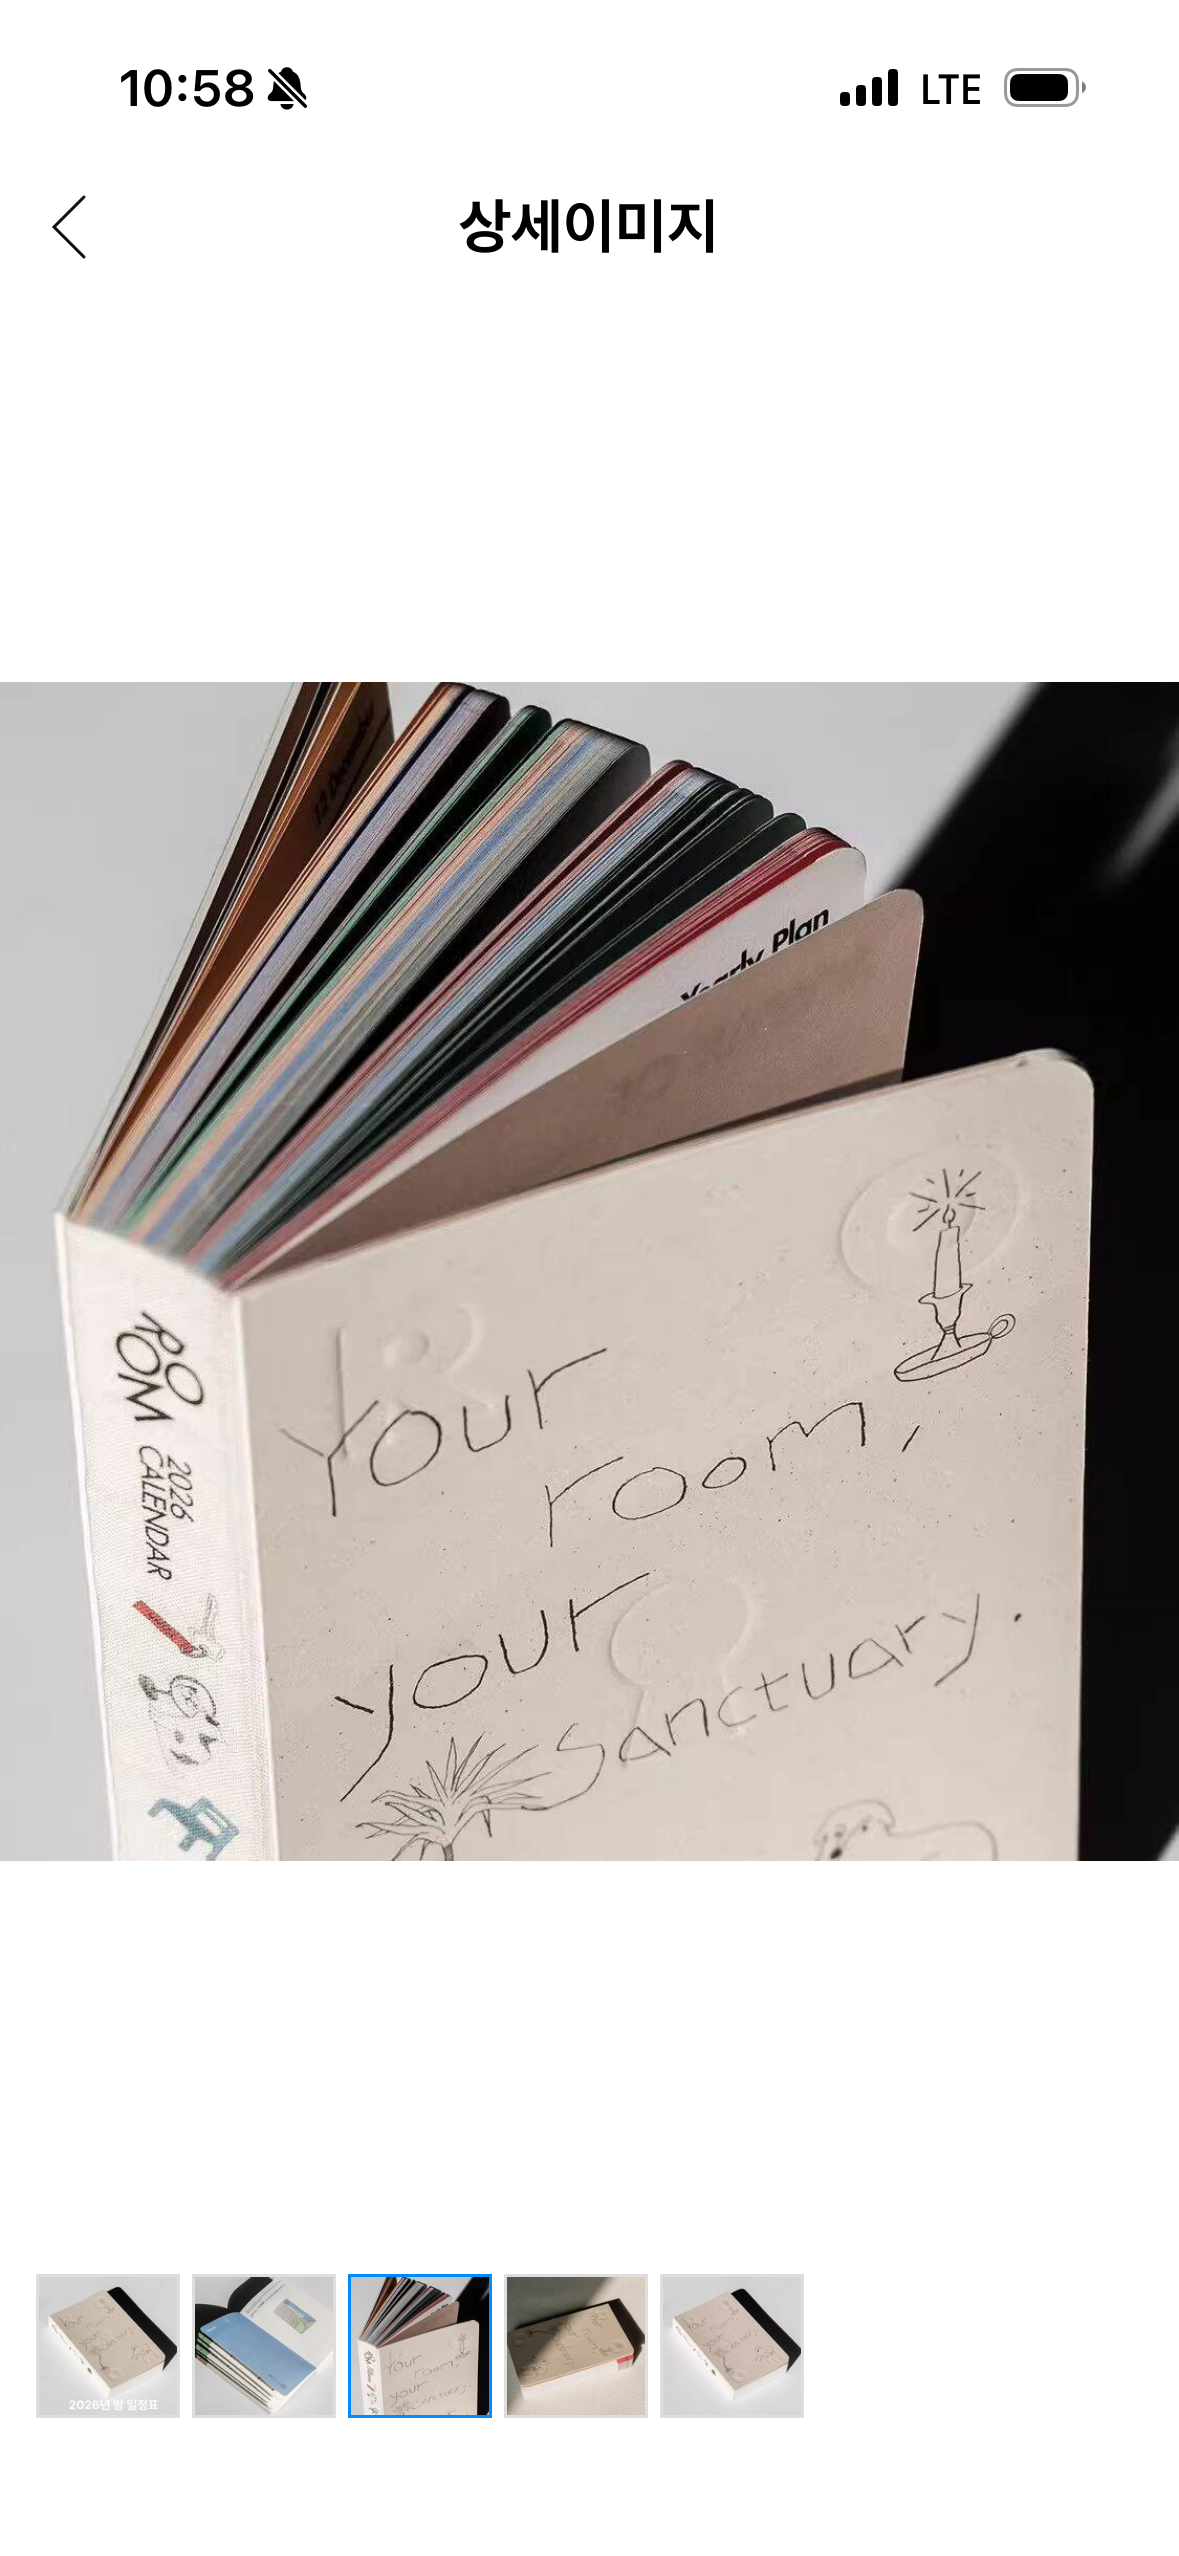 10:58
LTE
상세이미지
Yearly Plan
ROOM
2026
CALENDAR
Your
room,
your
Sanctuary.
2026년 방 일정표